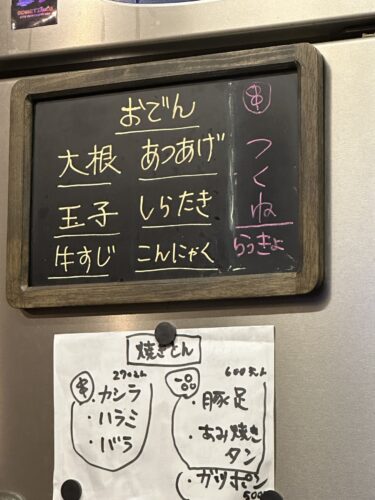 おでん
大根 あつあげ
玉子 しらたき
牛すじ こんにゃく
串
つくね
らっきょ
焼きとん
串 270えん
・カシラ
・ハラミ
・バラ
一品 600えん
・豚足
・あみ焼き
タン
・ガツポン
500